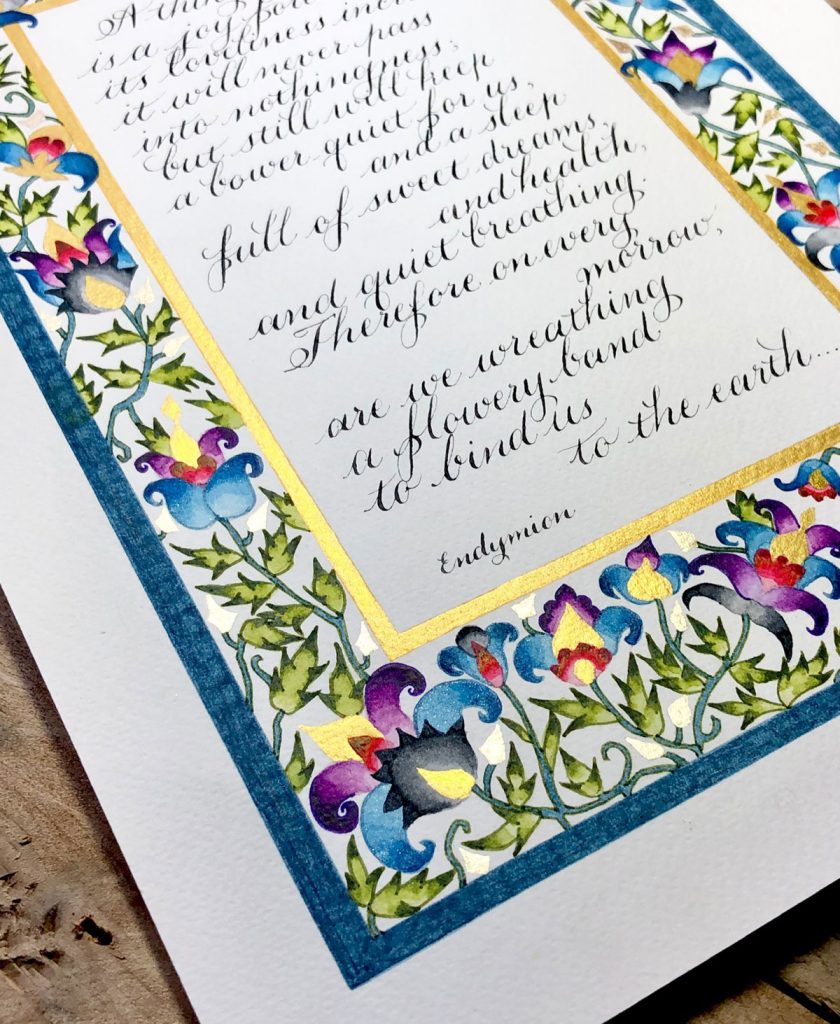 A thing
is a joy for
its loveliness
it will never pass
into nothingness;
but still will keep
a bower quiet for us,
and a sleep
full of sweet dreams,
and health,
and quiet breathing.
Therefore on every
morrow,
are we wreathing
a flowery band
to bind us
to the earth...
Endymion